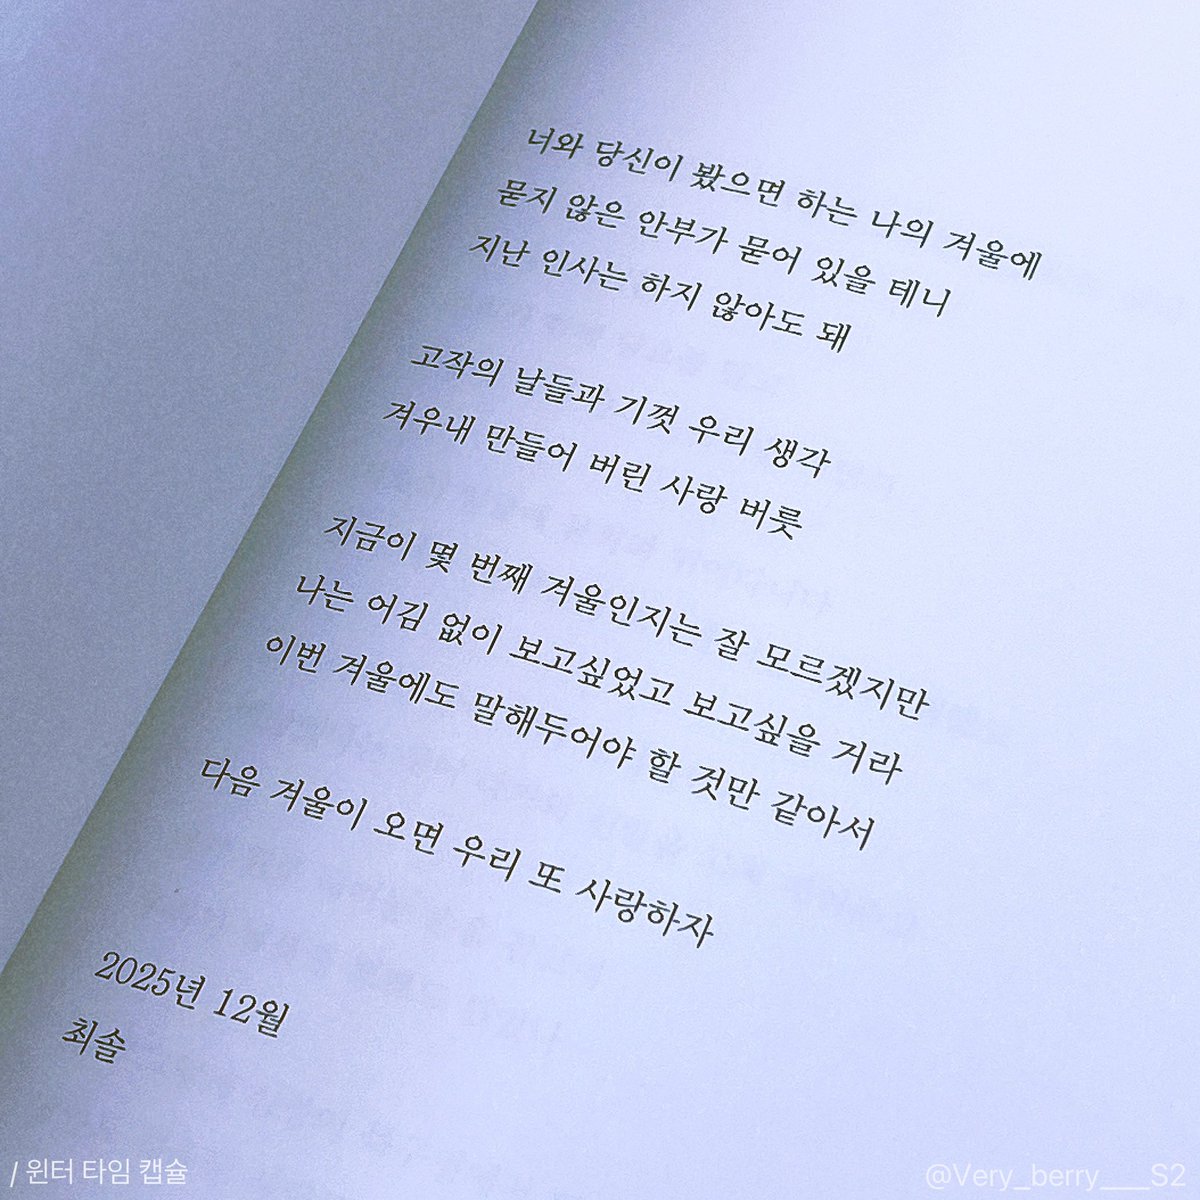 너와 당신이 봤으면 하는 나의 겨울에
묻지 않은 안부가 묻어 있을 테니
지난 인사는 하지 않아도 돼
고작의 날들과 기껏 우리 생각
겨우내 만들어 버린 사랑 버릇
지금이 몇 번째 겨울인지는 잘 모르겠지만
나는 어김 없이 보고싶었고 보고싶을 거라
이번 겨울에도 말해두어야 할 것만 같아서
다음 겨울이 오면 우리 또 사랑하자
2025년 12월
최솔
/ 윈터 타임 캡슐
@Very_berry___S2